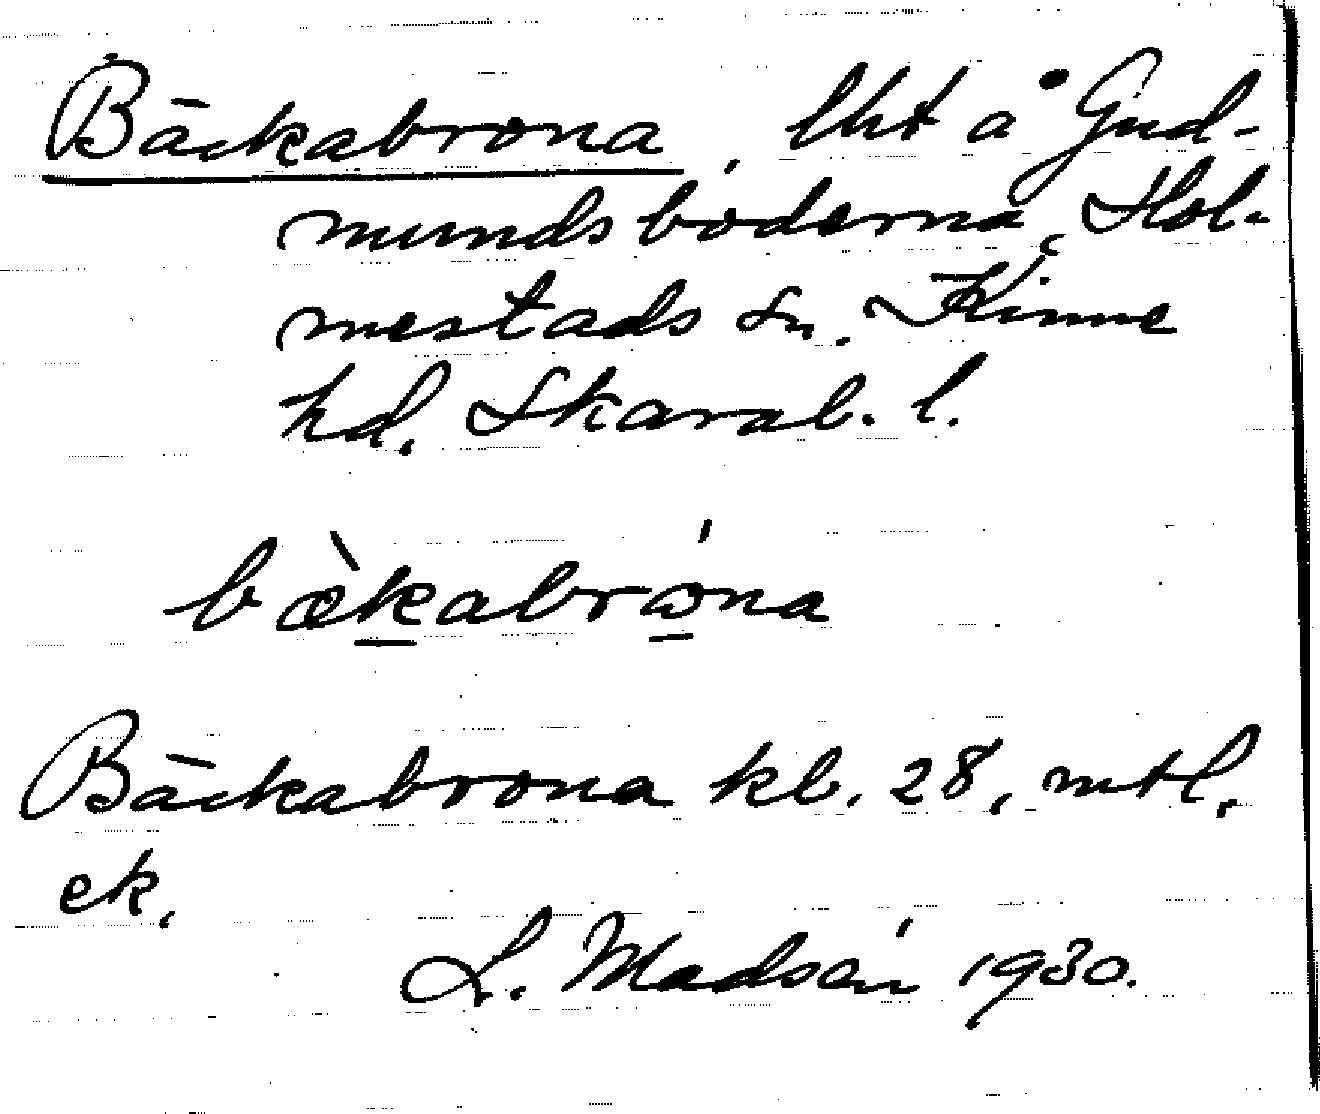 Bäckabrona, lht å Gud-
mundsboderna, Hol-
mestads sn. Kinne
hd. Skarab. l.
bæ̀kabrώna
Bäckabrona kb. 28, mtl.
ek.
L. Madsén 1930.